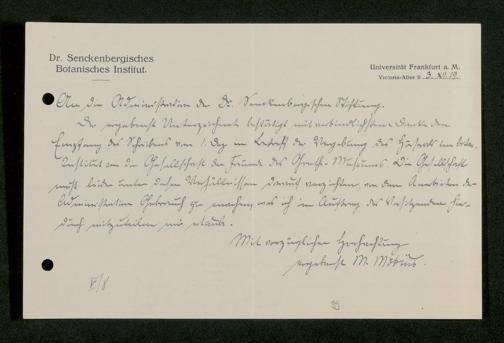 Dr. Senckenbergisches
Botanisches Institut.
Universität Frankfurt a. M.
Victoria-Allee 9 3. XII. 19
An die Administration der Dr. Senckenbergischen Stiftung.
Der ergebenst Unterzeichnete bestätigt mit verbindlichstem Danke den
Empfang des Schreibens vom 1. Dez. in Betreff der Vergebung des Hörsaals im botan.
Institut an die Gesellschaft der Freunde des Goeth. Museums. Die Gesellschaft
muß leider unter diesen Verhältnissen darauf verzichten, von dem Anerbieten der
Administration Gebrauch zu machen, was ich im Auftrag des Vorsitzenden hier-
durch mitzuteilen mir erlaube.
Mit vorzüglicher Hochachtung
ergebenst M. Möbius.